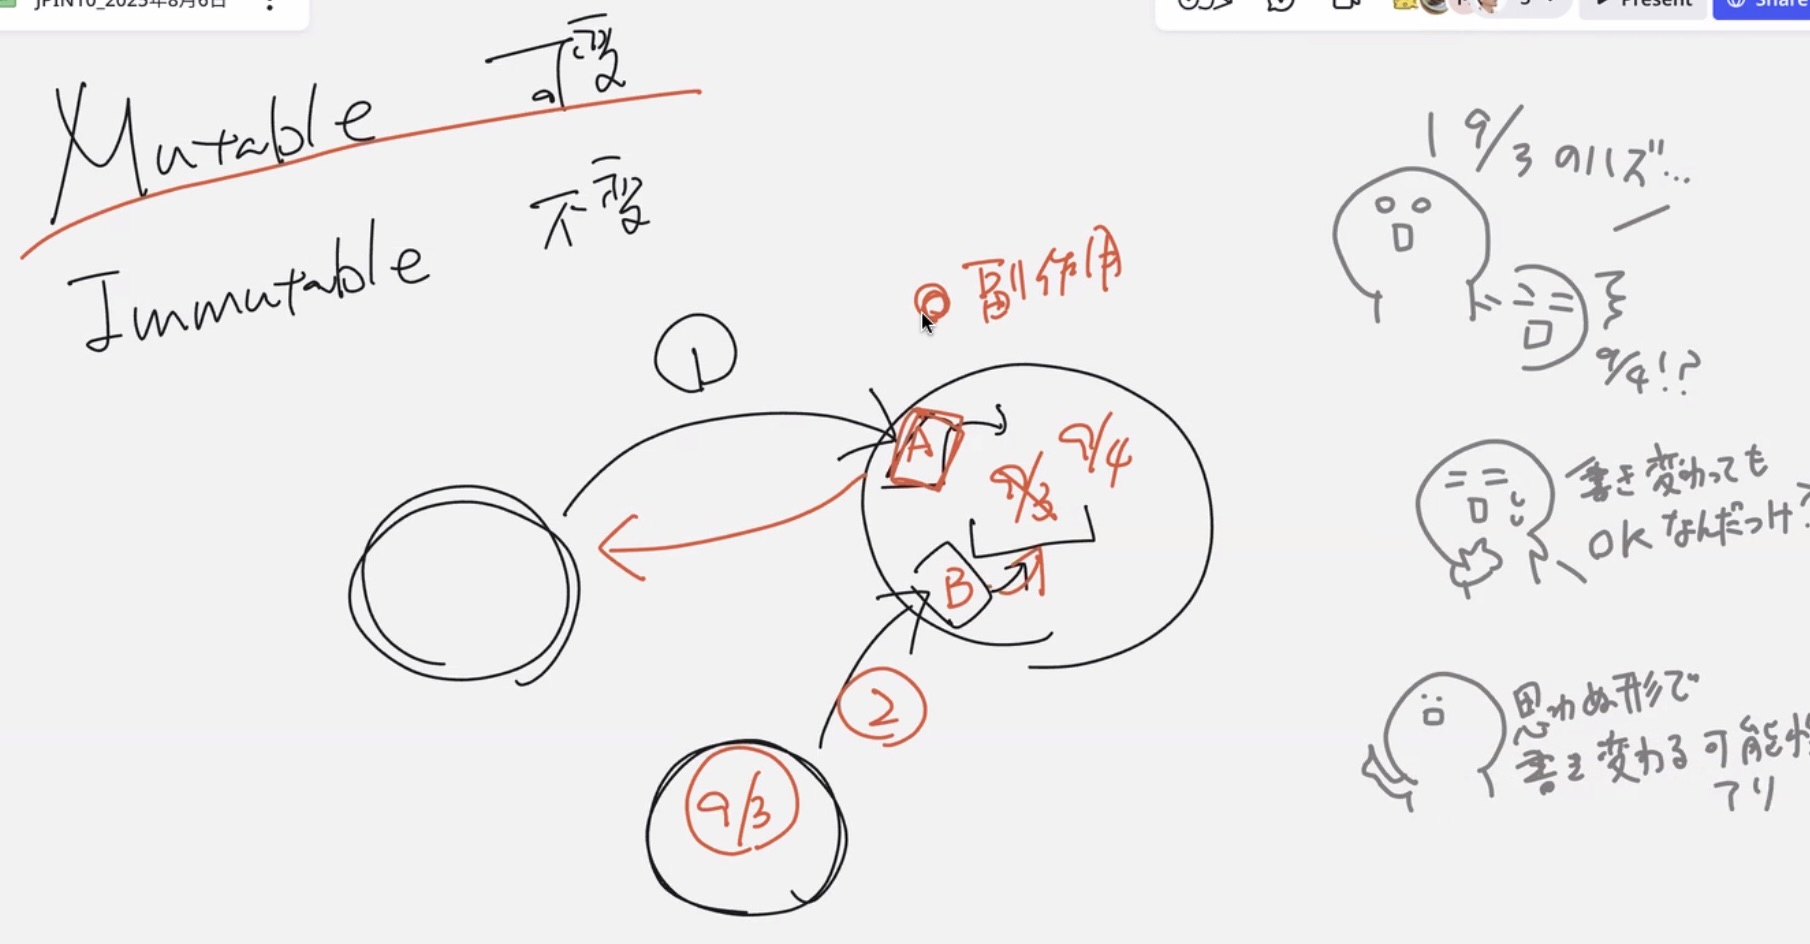 JPIN10_2025年8月6日
Present
Share
Mutable 可変
Immutable 不変
副作用
1
A
9/3
9/4
B
2
9/3
9/3 のハズ…
9/4!?
書き変わっても
OKなんだっけ?
思わぬ形で
書き変わる可能性
アリ